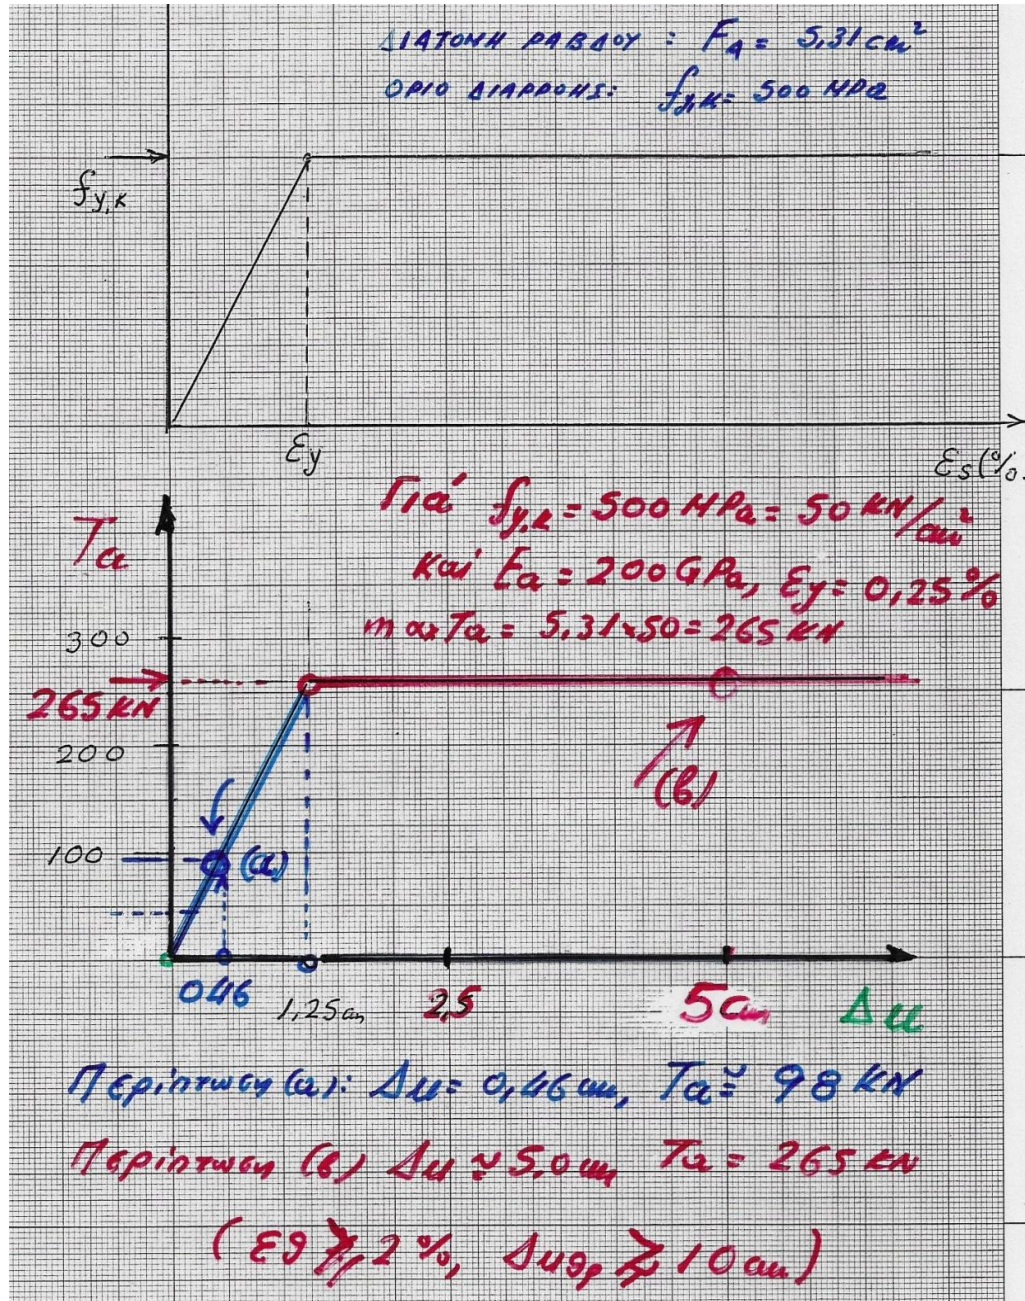 ΔΙΑΤΟΜΗ ΡΑΒΔΟΥ : F_A = 5,31 cm²
ΟΡΙΟ ΔΙΑΡΡΟΗΣ: f_y,k = 500 MPa
f_y,k
ε_y
ε_s (%.
Γιά f_y,k = 500 MPa = 50 KN/cm²
Ta
και Ea = 200 GPa, εy = 0,25%
max Ta = 5,31×50 = 265 KN
300
265 KN
200
(β)
100
(α)
046
1,25 cm
2,5
5cm
Δu
Περίπτωση (α): Δu = 0,46 cm, Ta ≅ 98 KN
Περίπτωση (β) Δu ≅ 5,0 cm Ta = 265 KN
(εθ ≥ 2%, Δuθρ ≥ 10 cm)